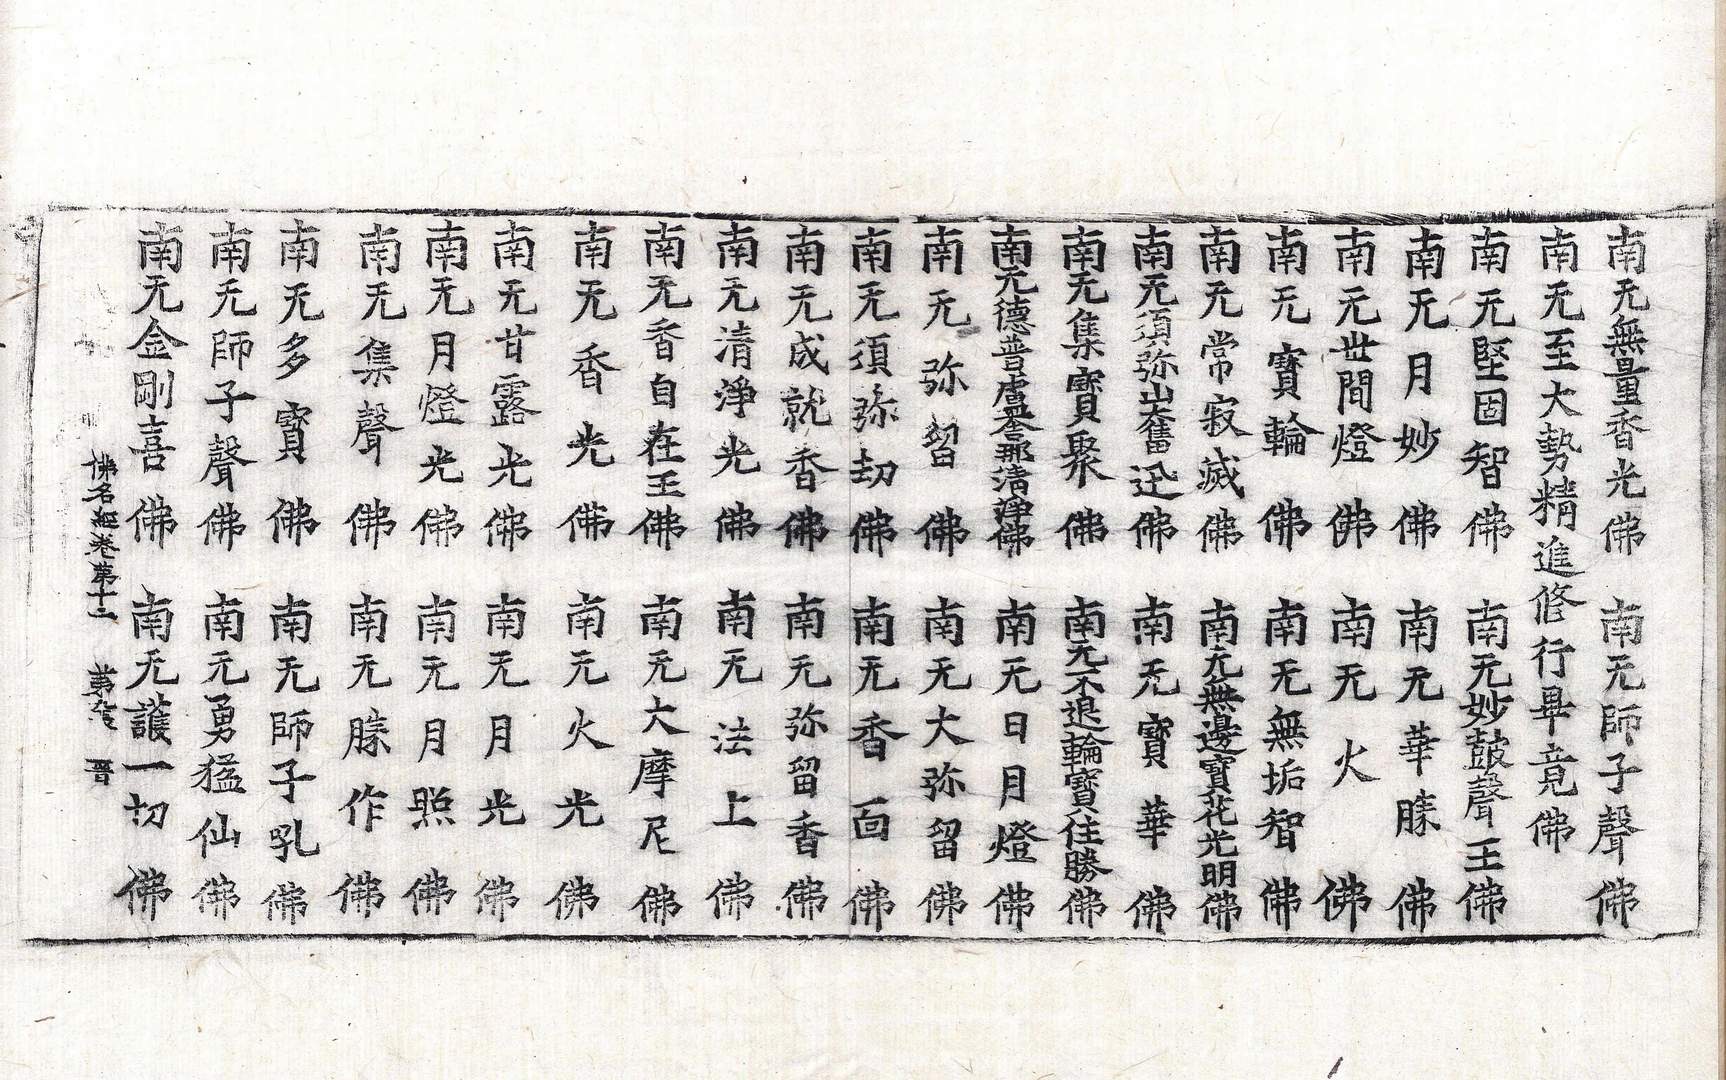 南无無量香光佛　南无師子聲佛
南无至大勢精進修行畢竟佛
南无堅固智佛　南无妙鼓聲王佛
南无月妙佛　南无華勝佛
南无世間燈佛　南无火佛
南无寶輪佛　南无無垢智佛
南无常寂滅佛　南无無邊寶花光明佛
南无須弥山奮迅佛　南无寶華佛
南无集寶聚佛　南无不退輪寶住勝佛
南无德普盧舍那清淨佛　南无日月燈佛
南无弥留佛　南无大弥留佛
南无須弥劫佛　南无香面佛
南无成就香佛　南无弥留香佛
南无清淨光佛　南无法上佛
南无香自在王佛　南无大摩尼佛
南无香光佛　南无火光佛
南无甘露光佛　南无月光佛
南无月燈光佛　南无月照佛
南无集聲佛　南无勝作佛
南无多寶佛　南无師子乳佛
南无師子聲佛　南无勇猛仙佛
南无金剛喜佛　南无護一切佛
佛名經卷第十二　第　張　晋